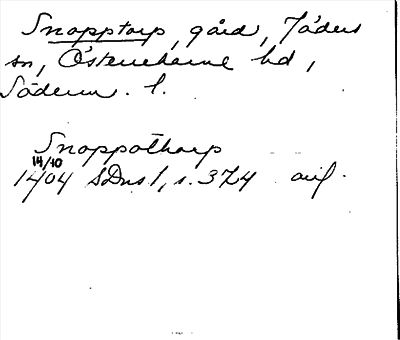 Snopptorp, gård, Jäders
sn, Österrekarne hd,
Söderm. l.
Snoppathorp
14/10
1404 SDns 1, s. 374 avf.